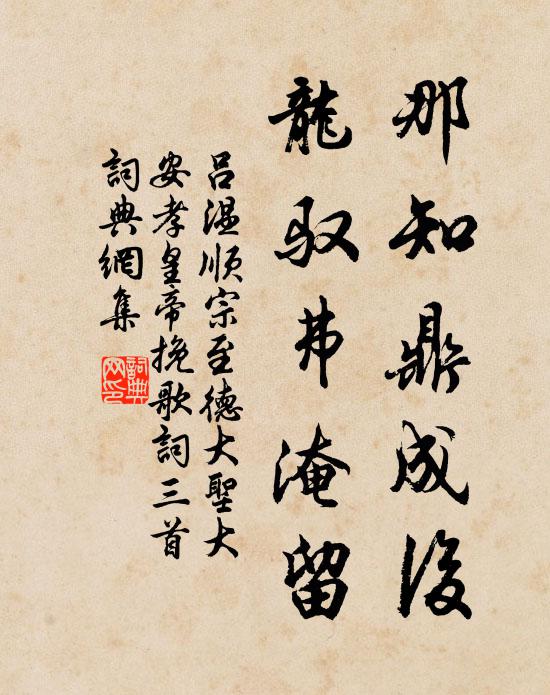 那知鼎成後
龍馭弗淹留
吕溫順宗至德大聖大
安孝皇帝挽歌詞三首
詞典網集
詞典
网印